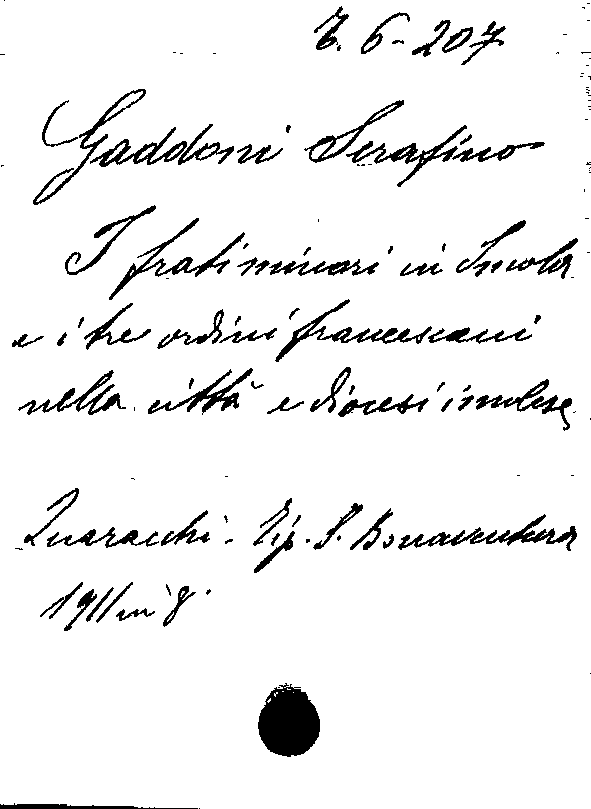 6-207
Gaddoni Serafino
I frati minori in Imola
e i tre ordini francescani
nella città e diocesi imolese
Quaracchi - Tip. S. Bonaventura
1911 in 8.